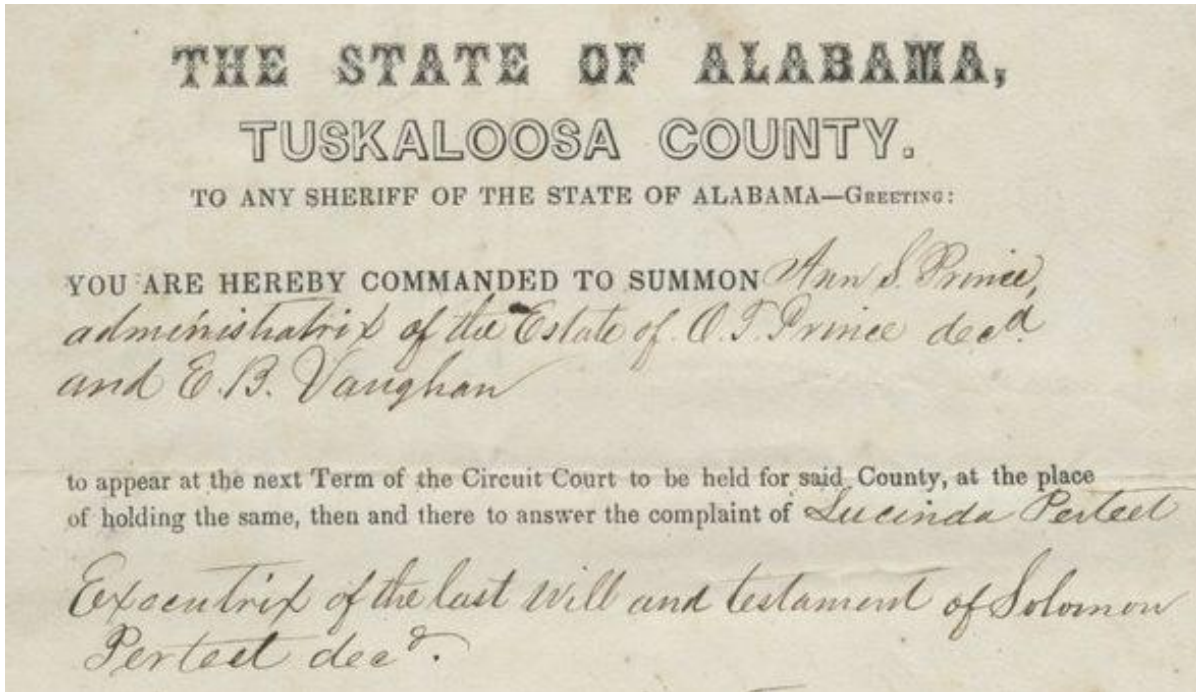 THE STATE OF ALABAMA,
TUSKALOOSA COUNTY.
TO ANY SHERIFF OF THE STATE OF ALABAMA—GREETING:
YOU ARE HEREBY COMMANDED TO SUMMON Ann S. Prince,
administratrix of the Estate of O. T. Prince decd.
and E. B. Vaughan
to appear at the next Term of the Circuit Court to be held for said County, at the place
of holding the same, then and there to answer the complaint of Lucinda Perteet
Executrix of the last will and testament of Solomon
Perteet decd.